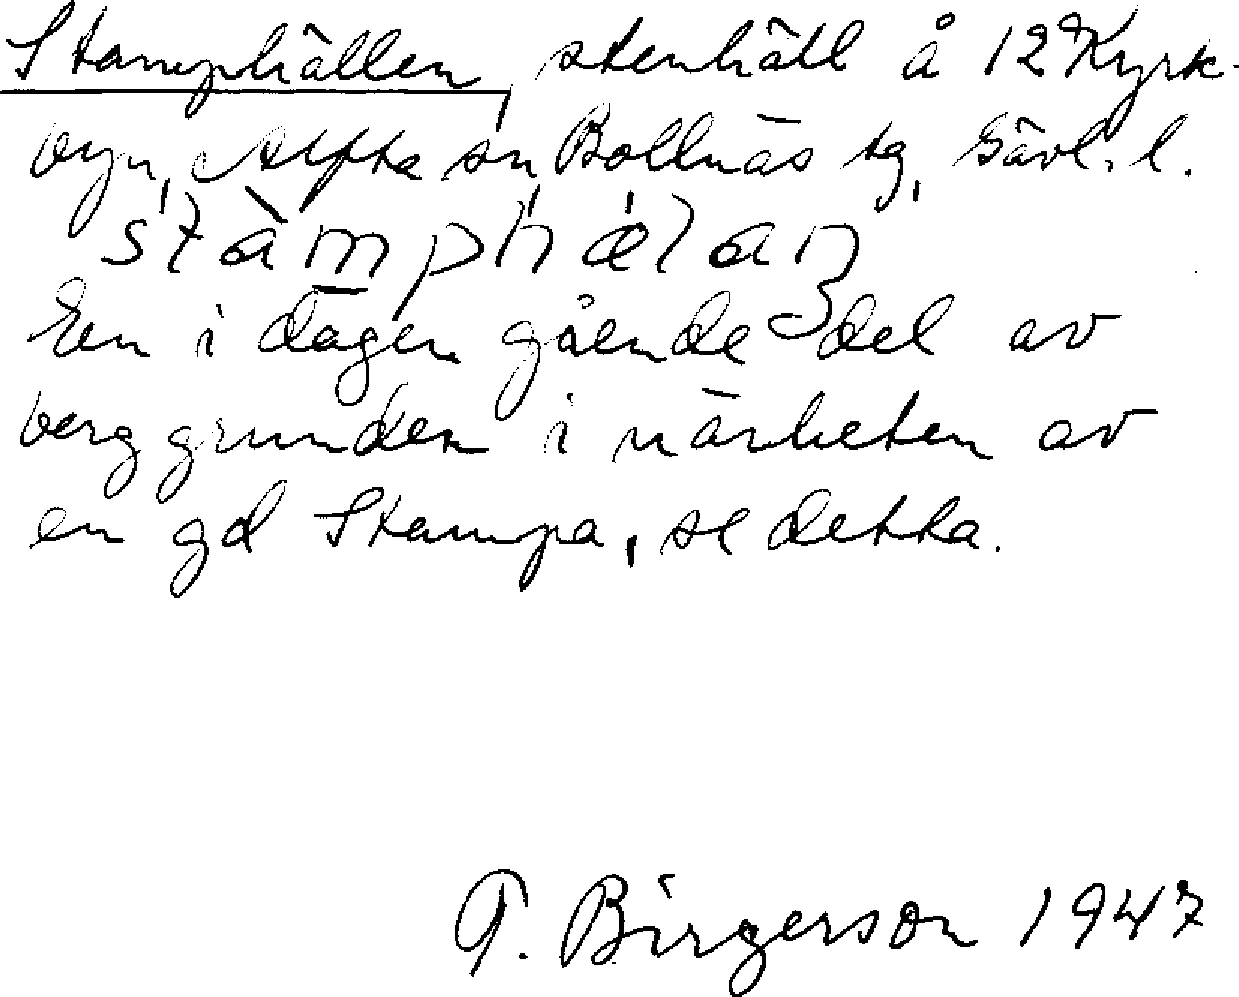 Stamphällen, stenhäll å 12 Kyrk-
byn, Alfta sn, Bollnäs tg, Gävl. l.
stàmphæłan
En i dagen gående del av
berggrunden i närheten av
en gd Stampa, se detta.
T. Birgerson 1947